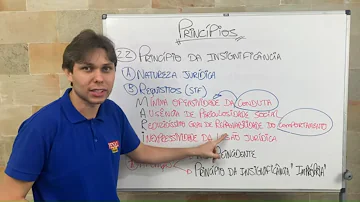 PRINCÍPIOS
22 PRINCÍPIO DA INSIGNIFICÂNCIA
A NATUREZA JURÍDICA
B REQUISITOS (STF)
MÍNIMA OFENSIVIDADE DA CONDUTA
AUSÊNCIA DE PERICULOSIDADE SOCIAL
REDUZIDÍSSIMO GRAU DE REPROVABILIDADE DO COMPORTAMENTO
INEXPRESSIVIDADE DA LESÃO JURÍDICA
REINCIDENTE
PRINCÍPIO DA INSIGNIFICÂNCIA "IMPRÓPRIA"